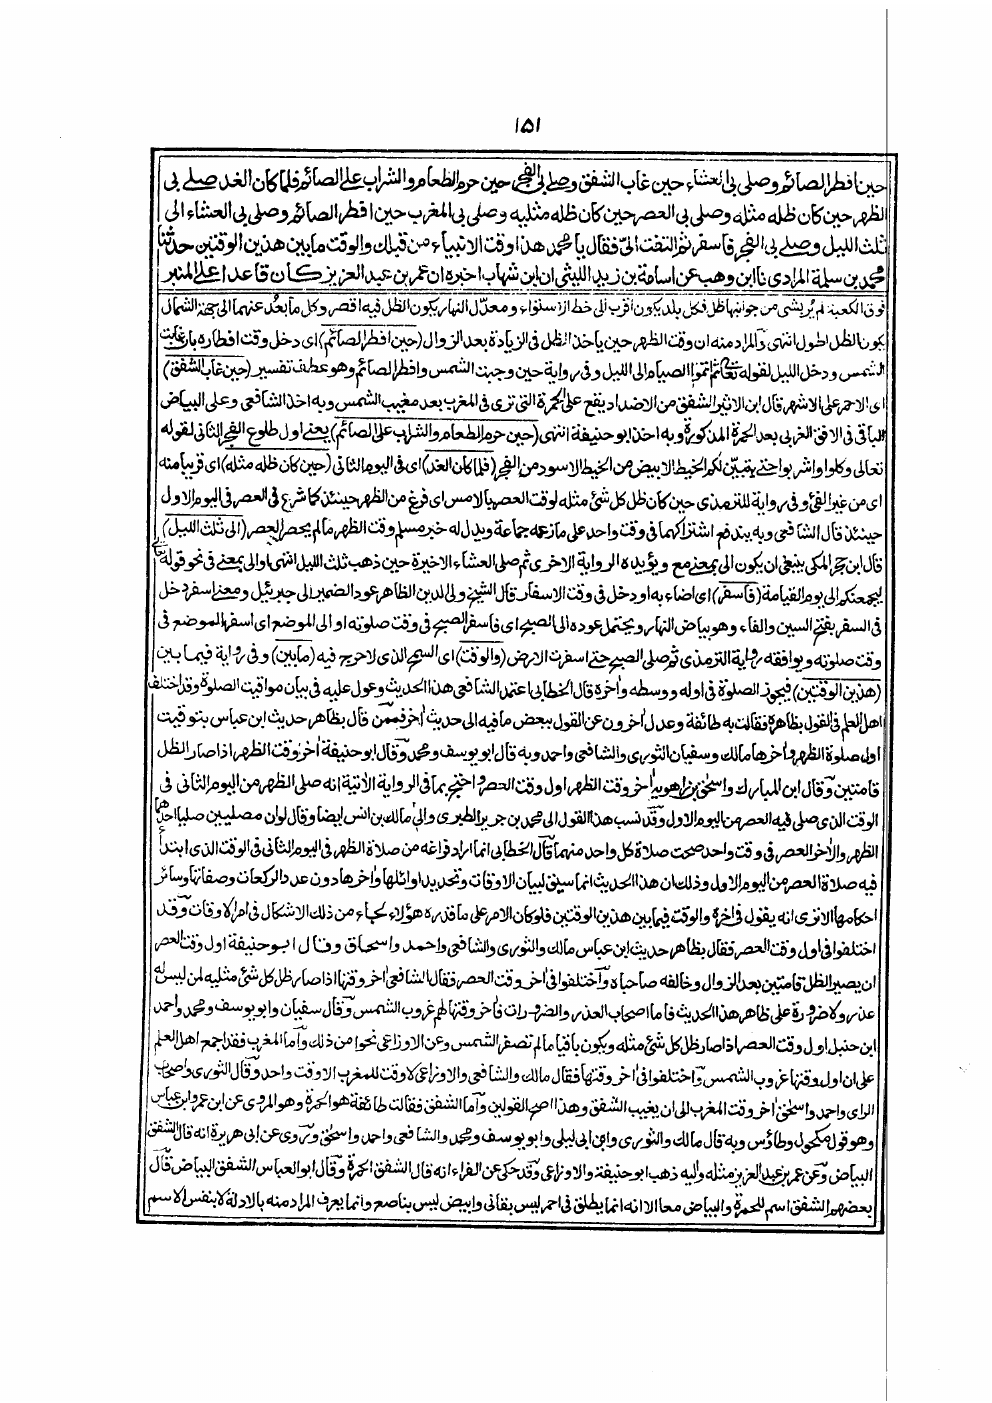 ١٥١
حين افطر الصائم وصلى بى العشاء حين غاب الشفق وصلى بى الفجر حين حرم الطعام والشراب على الصائم فلما كان الغد صلى بى
الظهر حين كان ظله مثله وصلى بى العصر حين كان ظله مثليه وصلى بى المغرب حين افطر الصائم وصلى بى العشاء الى
ثلث الليل وصلى بى الفجر فاسفر ثم التفت الىّ فقال يا محمد هذا وقت الانبياء من قبلك والوقت ما بين هذين الوقتين حدثنا
محمد بن سلمة المرادى نا ابن وهب عن اسامة بن زيد الليثى ان ابن شهاب اخبره ان عمر بن عبد العزيز كان قاعدا على المنبر
فوق الكعبة لم يُر بشى من جوانبها ظل فكل بلد يكون اقرب الى خط الاستواء ومعدّل النهار يكون الظل فيه اقصر وكل ما بعُد عنهما الى جهة الشمال
يكون الظل اطول انتهى والمراد منه ان وقت الظهر حين ياخذ الظل فى الزيادة بعد الزوال (حين افطر الصائم) اى دخل وقت افطاره بان غابت
الشمس ودخل الليل لقوله تعالى ثم اتموا الصيام الى الليل وفى رواية حين وجبت الشمس وافطر الصائم وهو عطف تفسير (حين غاب الشفق)
اى الاحمر على الاشهر قال ابن الاثير الشفق من الاضداد يقع على الحمرة التى ترى فى المغرب بعد مغيب الشمس وبه اخذ الشافعى وعلى البياض
الباقى فى الافق الغربى بعد الحمرة المذكورة وبه اخذ ابو حنيفة انتهى (حين حرم الطعام والشراب على الصائم) يعنى اول طلوع الفجر الثانى لقوله
تعالى وكلوا واشربوا حتى يتبيّن لكم الخيط الابيض من الخيط الاسود من الفجر (فلما كان الغد) اى فى اليوم الثانى (حين كان ظله مثله) اى قريبا منه
اى من غير الفئ وفى رواية للترمذى حين كان ظل كل شئ مثله لوقت العصر بالامس اى فرغ من الظهر حينئذ كما شرع فى العصر فى اليوم الاول
حينئذ قال الشافعى وبه يندفع اشتراكهما فى وقت واحد على ما زعمه جماعة ويدل له خبر مسلم وقت الظهر ما لم يحضر العصر (الى ثلث الليل)
قال ابن حجر المكى ينبغى ان يكون الى بمعنى مع ويؤيده الرواية الاخرى ثم صلى العشاء الاخيرة حين ذهب ثلث الليل انتهى اوالى بمعنى فى نحو قوله تعالى
ليجمعنكم الى يوم القيامة (فاسفر) اى اضاء به او دخل فى وقت الاسفار قال الشيخ ولى الدين الظاهر عود الضمير الى جبرئيل ومعنى اسفر دخل
فى السفر بفتح السين والفاء وهو بياض النهار ويحتمل عوده الى الصبح اى فاسفر الصبح فى وقت صلوته او الى الموضع اى اسفر الموضع فى
وقت صلوته ويوافقه رواية الترمذى ثم صلى الصبح حتى اسفرت الارض (والوقت) اى السمح الذى لا حرج فيه (ما بين) وفى رواية فيما بين
(هذين الوقتين) فيجوز الصلوة فى اوله ووسطه وآخره قال الخطابى اعتمد الشافعى هذا الحديث وعول عليه فى بيان مواقيت الصلوة وقد اختلف
اهل العلم فى القول بظاهره فقالت به طائفة وعدل آخرون عن القول ببعض ما فيه الى حديث آخر فممن قال بظاهر حديث ابن عباس بتوقيت
اول صلوة الظهر وآخرها مالك وسفيان الثورى والشافعى واحمد وبه قال ابو يوسف ومحمد وقال ابو حنيفة آخر وقت الظهر اذا صار الظل
قامتين وقال ابن المبارك واسحق بن راهويه آخر وقت الظهر اول وقت العصر واحتج بما فى الرواية الاتية انه صلى الظهر من اليوم الثانى فى
الوقت الذى صلى فيه العصر من اليوم الاول وقد نسب هذا القول الى محمد بن جرير الطبرى والى مالك بن انس ايضا وقال لو ان مصليين صليا احدهما
الظهر والآخر العصر فى وقت واحد صحت صلاة كل واحد منهما قال الخطابى انما اراد فراغه من صلاة الظهر فى اليوم الثانى فى الوقت الذى ابتدأ
فيه صلاة العصر من اليوم الاول وذلك ان هذا الحديث انما سيق لبيان الاوقات وتحديد اوائلها وآخرها دون عدد الركعات وصفاتها وسائر
احكامها الا ترى انه يقول فى آخره والوقت فيما بين هذين الوقتين فلو كان الامر على ما قدره هؤلاء لجاء من ذلك الاشكال فى امر الاوقات وقد
اختلفوا فى اول وقت العصر فقال بظاهر حديث ابن عباس مالك والثورى والشافعى واحمد واسحاق وقال ابو حنيفة اول وقت العصر
ان يصير الظل قامتين بعد الزوال وخالفه صاحباه واختلفوا فى آخر وقت العصر فقال الشافعى آخر وقتها اذا صار ظل كل شئ مثليه لمن ليس له
عذر ولا ضرورة على ظاهر هذا الحديث فاما اصحاب العذر والضرورات فآخر وقتها لهم غروب الشمس وقال سفيان وابو يوسف ومحمد واحمد
ابن حنبل اول وقت العصر اذا صار ظل كل شئ مثله ويكون باقيا ما لم تصفر الشمس وعن الاوزاعى نحوا من ذلك واما المغرب فقد اجمع اهل العلم
على ان اول وقتها غروب الشمس واختلفوا فى آخر وقتها فقال مالك والشافعى والاوزاعى لا وقت للمغرب الا وقت واحد وقال الثورى واصحاب
الراى واحمد واسحق آخر وقت المغرب الى ان يغيب الشفق وهذا اصح القولين واما الشفق فقالت طائفة هو الحمرة وهو المروى عن ابن عمر وابن عباس
وهو قول مكحول وطاؤس وبه قال مالك والثورى وابن ابى ليلى وابو يوسف ومحمد والشافعى واحمد واسحق وروى عن ابى هريرة انه قال الشفق
البياض وعن عمر بن عبد العزيز مثله واليه ذهب ابو حنيفة والاوزاعى وقد حكى عن الفراء انه قال الشفق الحمرة وقال ابو العباس الشفق البياض قال
بعضهم الشفق اسم للحمرة والبياض معا الا انه انما يطلق فى احمر ليس بقانى وابيض ليس بناصع وانما يعرف المراد منه بالادلة لا بنفس الاسم